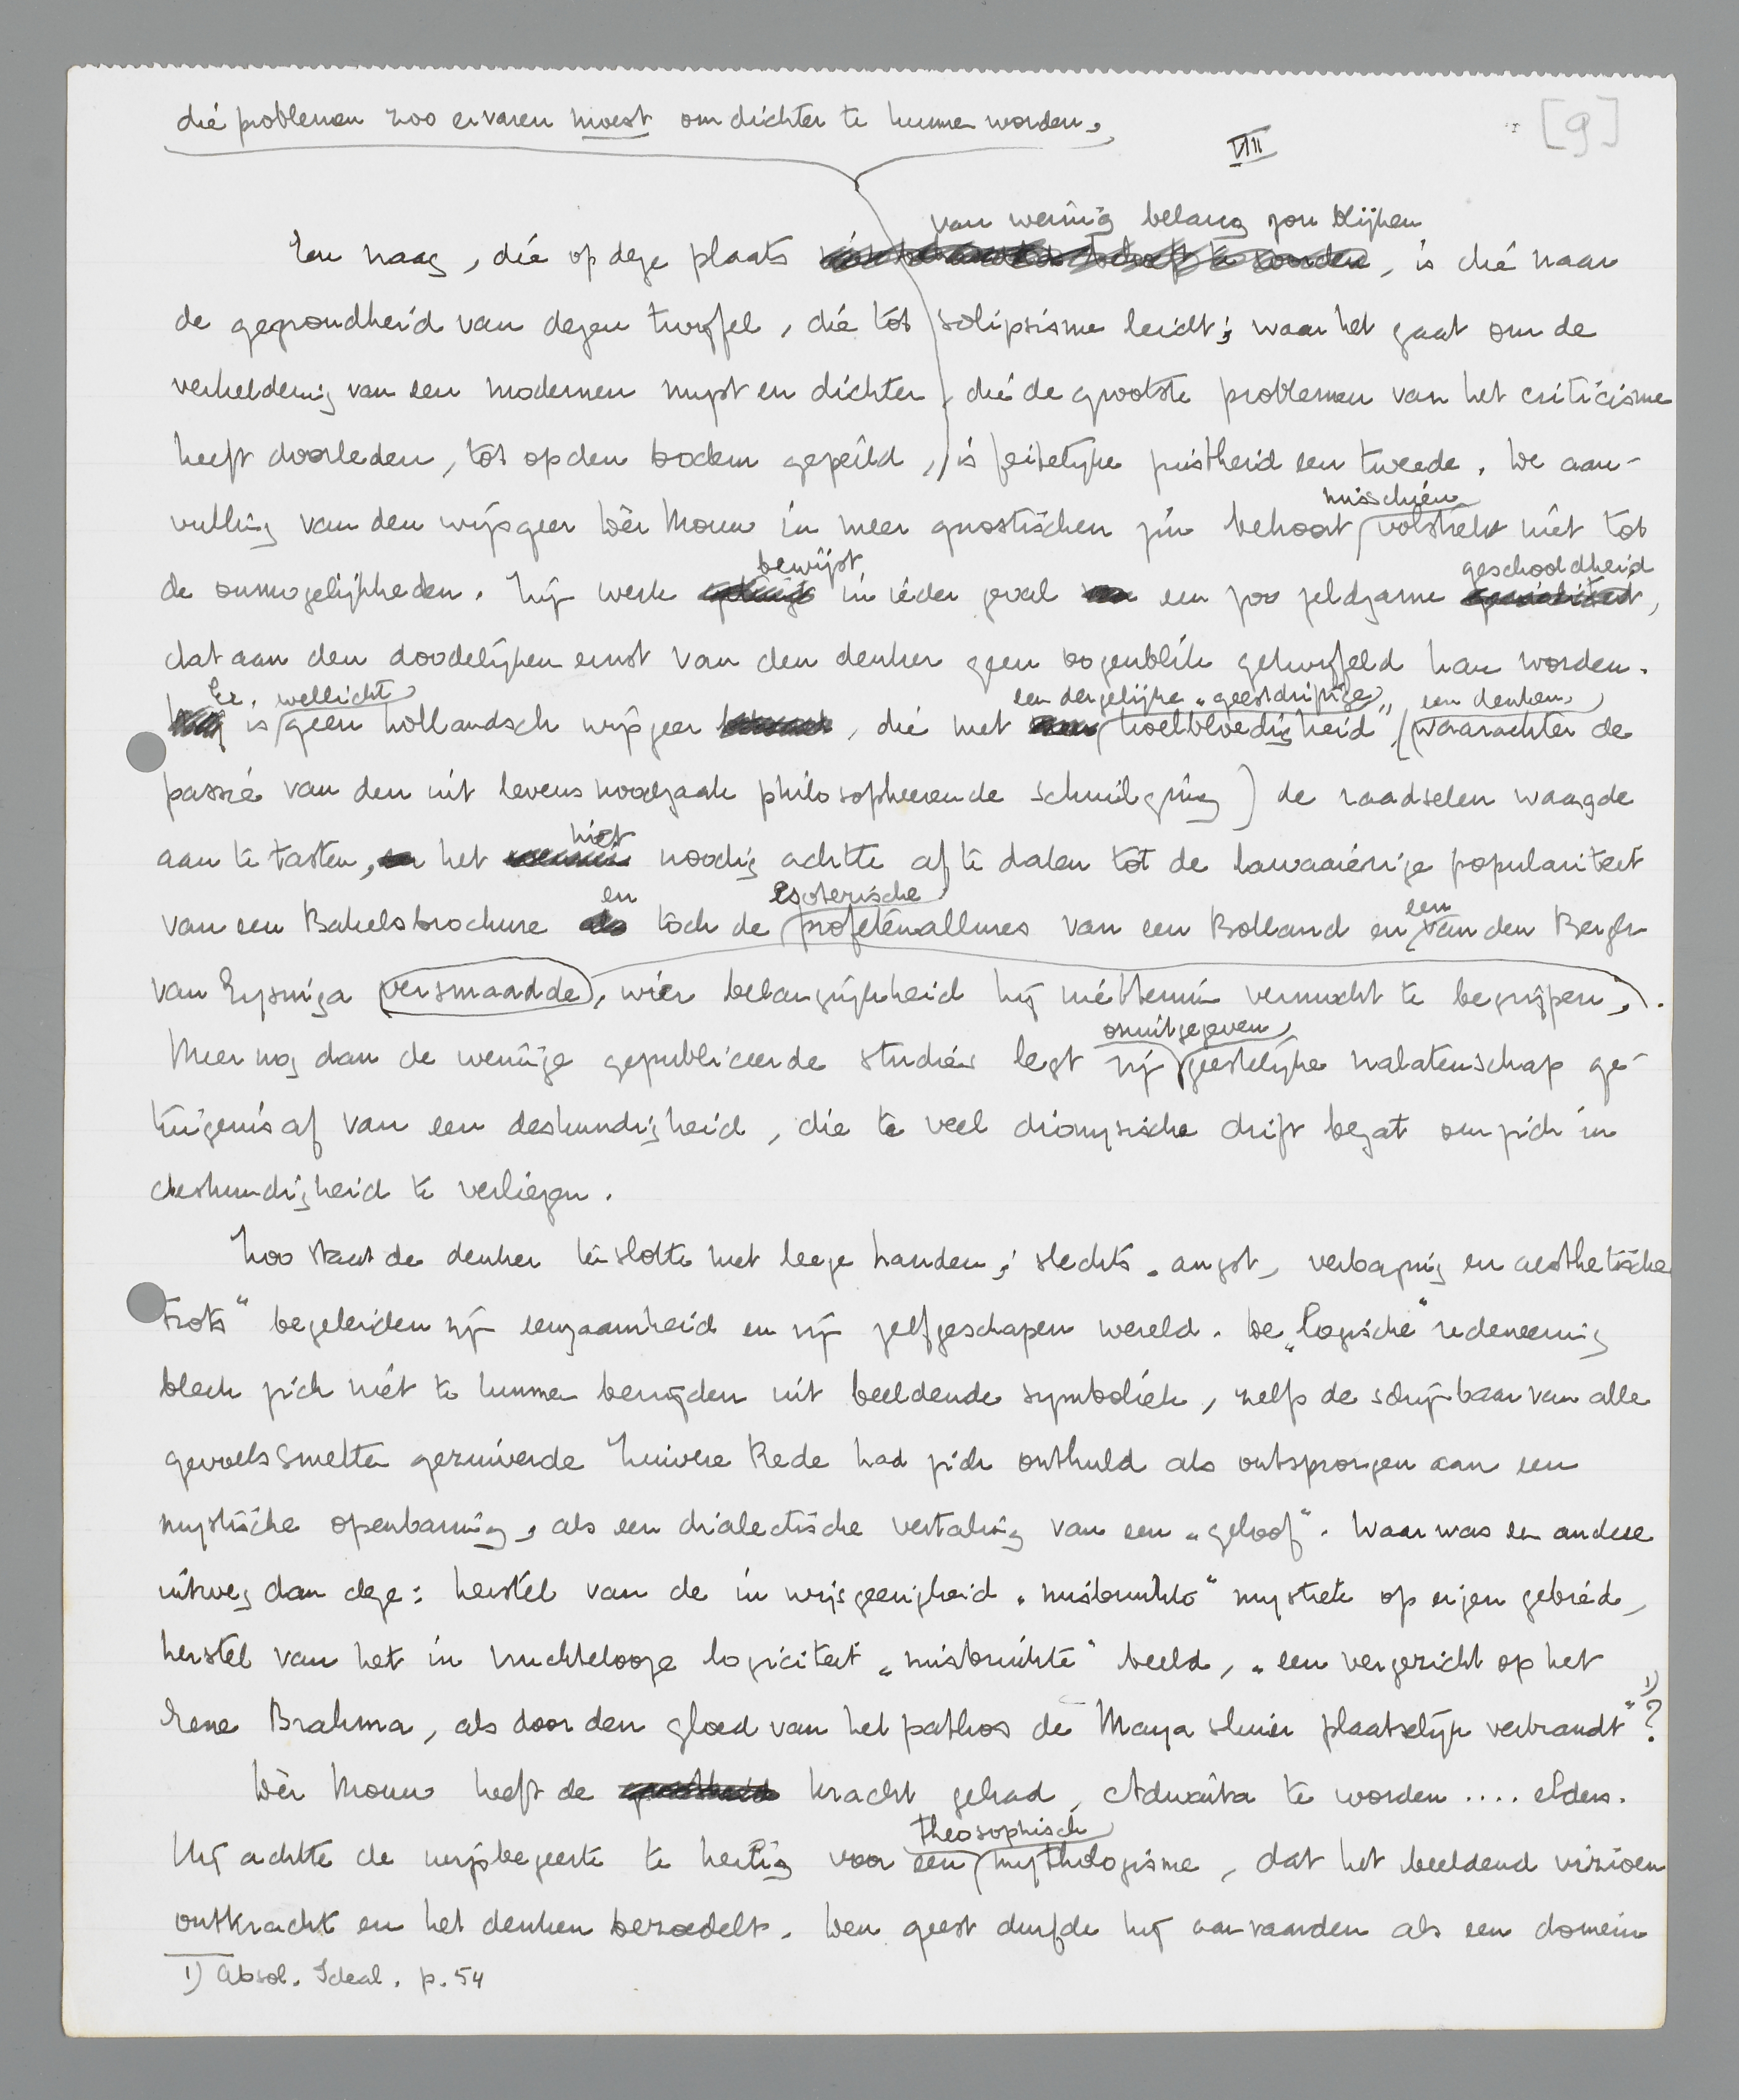 die problemen zoo ervaren moest om dichter te kunnen worden,
[9]
VIII
van weinig belang zou blijken
Een vraag, die op deze plaats , is die naar
de gegrondheid van dezen twijfel, die tot solipsisme leidt; waar het gaat om de
verheldering van een modernen mysticus en dichter, die de grootste problemen van het criticisme
heeft doorleden, tot op den bodem gepeild, is feitelijke juistheid een tweede. De aan-
misschien
vulling van den wijsgeer Dèr Mouw in meer gnostischen zin behoort volstrekt niet tot
bewijst geschooldheid
de onmogelijkheden. Zijn werk in ieder geval een zoo zeldzame ,
dat aan den doodelijken ernst van den denker geen oogenblik getwijfeld kan worden.
Er wellicht een dergelijke "geestdriftige" een denken,
is geen hollandsch wijsgeer , die met koelbloedigheid (waarachter de
passie van den uit levensnoodzaak philosopheerende schuilging) de raadselen waagde
niet
aan te tasten, het noodig achtte af te dalen tot de lawaaierige populariteit
en esoterische een
van een Bakelsbrochure toch de profetenallures van een Bolland en van den Bergh
van Eysinga versmaadde, wier belangrijkheid hij niettemin vermocht te begrijpen.
onuitgegeven
Meer nog dan de weinige gepubliceerde studies legt zijn geestelijke nalatenschap ge-
tuigenis af van een deskundigheid, die te veel dionysische drift bezat om zich in
deskundigheid te verliezen.
Zoo staat de denker tenslotte met leege handen; slechts "angst, verbazing en aesthetische
trots" begeleiden zijn eenzaamheid en zijn zelfgeschapen wereld. De "logische" redeneering
bleek zich niet te kunnen bevrijden uit beeldende symboliek, zelfs de schijnbaar van alle
gevoelssmetten gezuiverde Zuivere Rede had zich onthuld als ontsprongen aan een
mystische openbaring, als een dialectische vertaling van een "geloof". Waar was een andere
uitweg dan deze: herstel van de in wijsgeerigheid "misbruikte" mystiek op eigen gebied,
herstel van het in vruchtelooze logiciteit "misbruikte" beeld, "een vergezicht op het
Eene Brahma, als door den gloed van het pathos de Maya sluier plaatselijk verbrandt" 1)?
Dèr Mouw heeft de kracht gehad, Adwaita te worden .... elders.
theosophisch
Hij achtte de wijsbegeerte te heilig voor een mythologisme, dat het beeldend vizioen
ontkracht en het denken bezoedelt. Den geest durfde hij aanvaarden als een domein
1) Absol. Ideal. p. 54